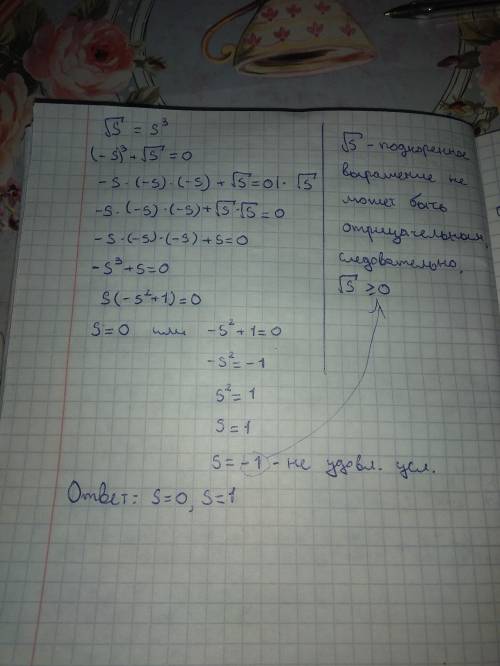 √S = S³
(-S)³ + √S = 0
-S · (-S) · (-S) + √S = 0 | · √S
-S · (-S) · (-S) + √S · √S = 0
-S · (-S) · (-S) + S = 0
-S³ + S = 0
S(-S² + 1) = 0
S = 0 или -S² + 1 = 0
-S² = -1
S² = 1
S = 1
S = -1 - не удовл. усл.
Ответ: S = 0, S = 1
√S - подкоренное
выражение не
может быть
отрицательным,
следовательно,
√S ≥ 0